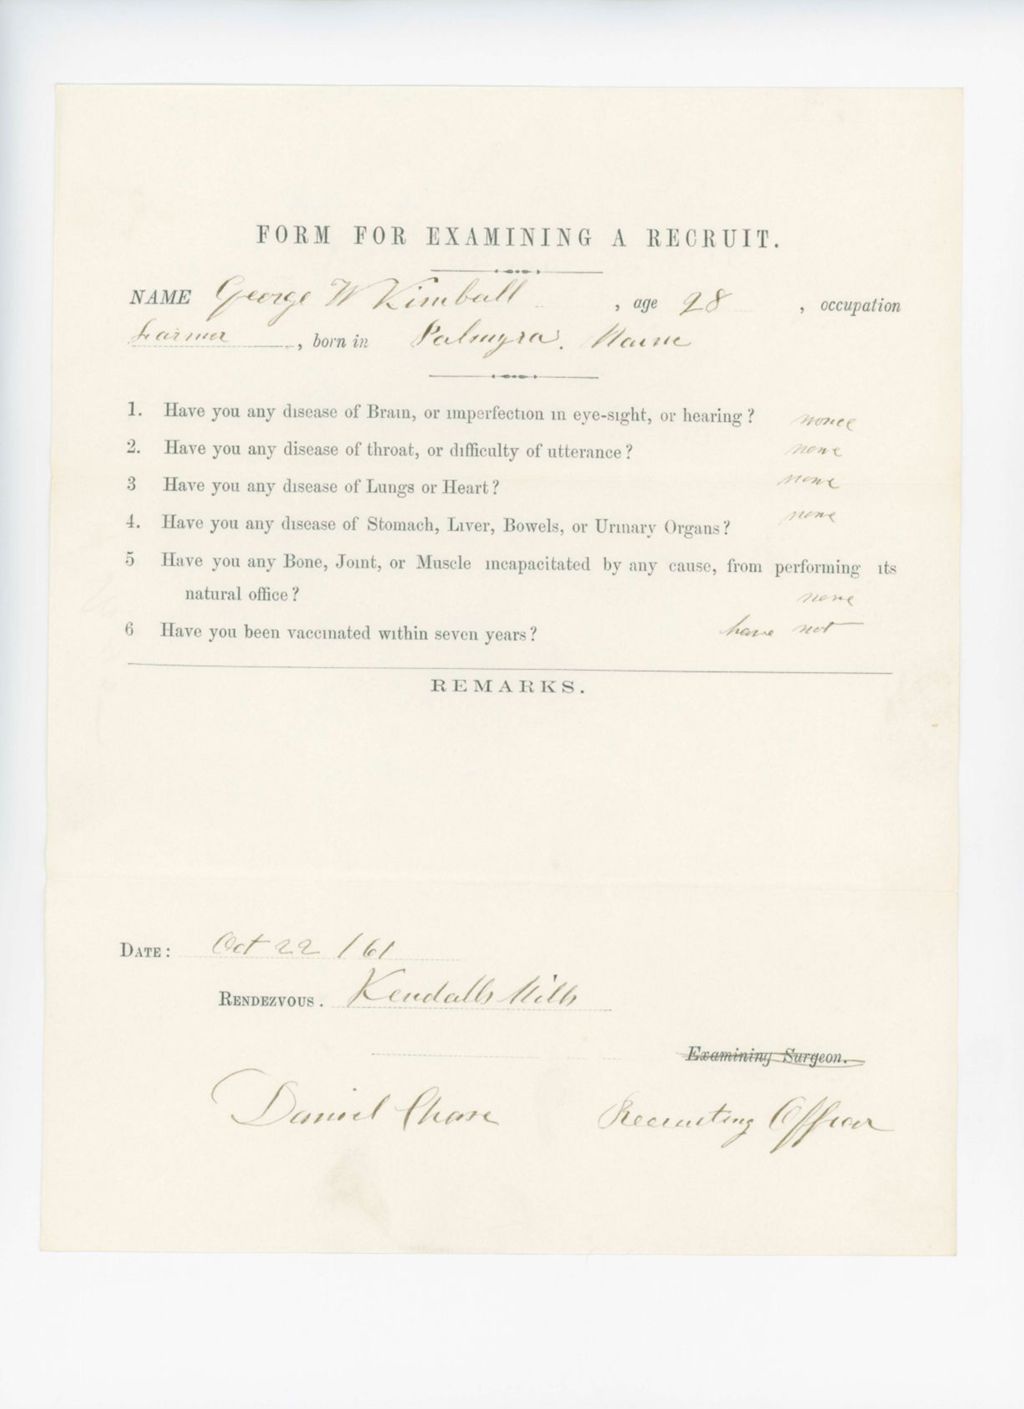 FORM FOR EXAMINING A RECRUIT.
NAME George W Kimball , age 28 , occupation
Farmer , born in Palmyra. Maine
1. Have you any disease of Brain, or imperfection in eye-sight, or hearing? none
2. Have you any disease of throat, or difficulty of utterance? none
3 Have you any disease of Lungs or Heart? none
4. Have you any disease of Stomach, Liver, Bowels, or Urinary Organs? none
5 Have you any Bone, Joint, or Muscle incapacitated by any cause, from performing its
natural office? none
6 Have you been vaccinated within seven years? have not
REMARKS.
DATE: Oct 22 /61
RENDEZVOUS. Kendalls Mills
Examining Surgeon.
Daniel Chase Recruiting Officer